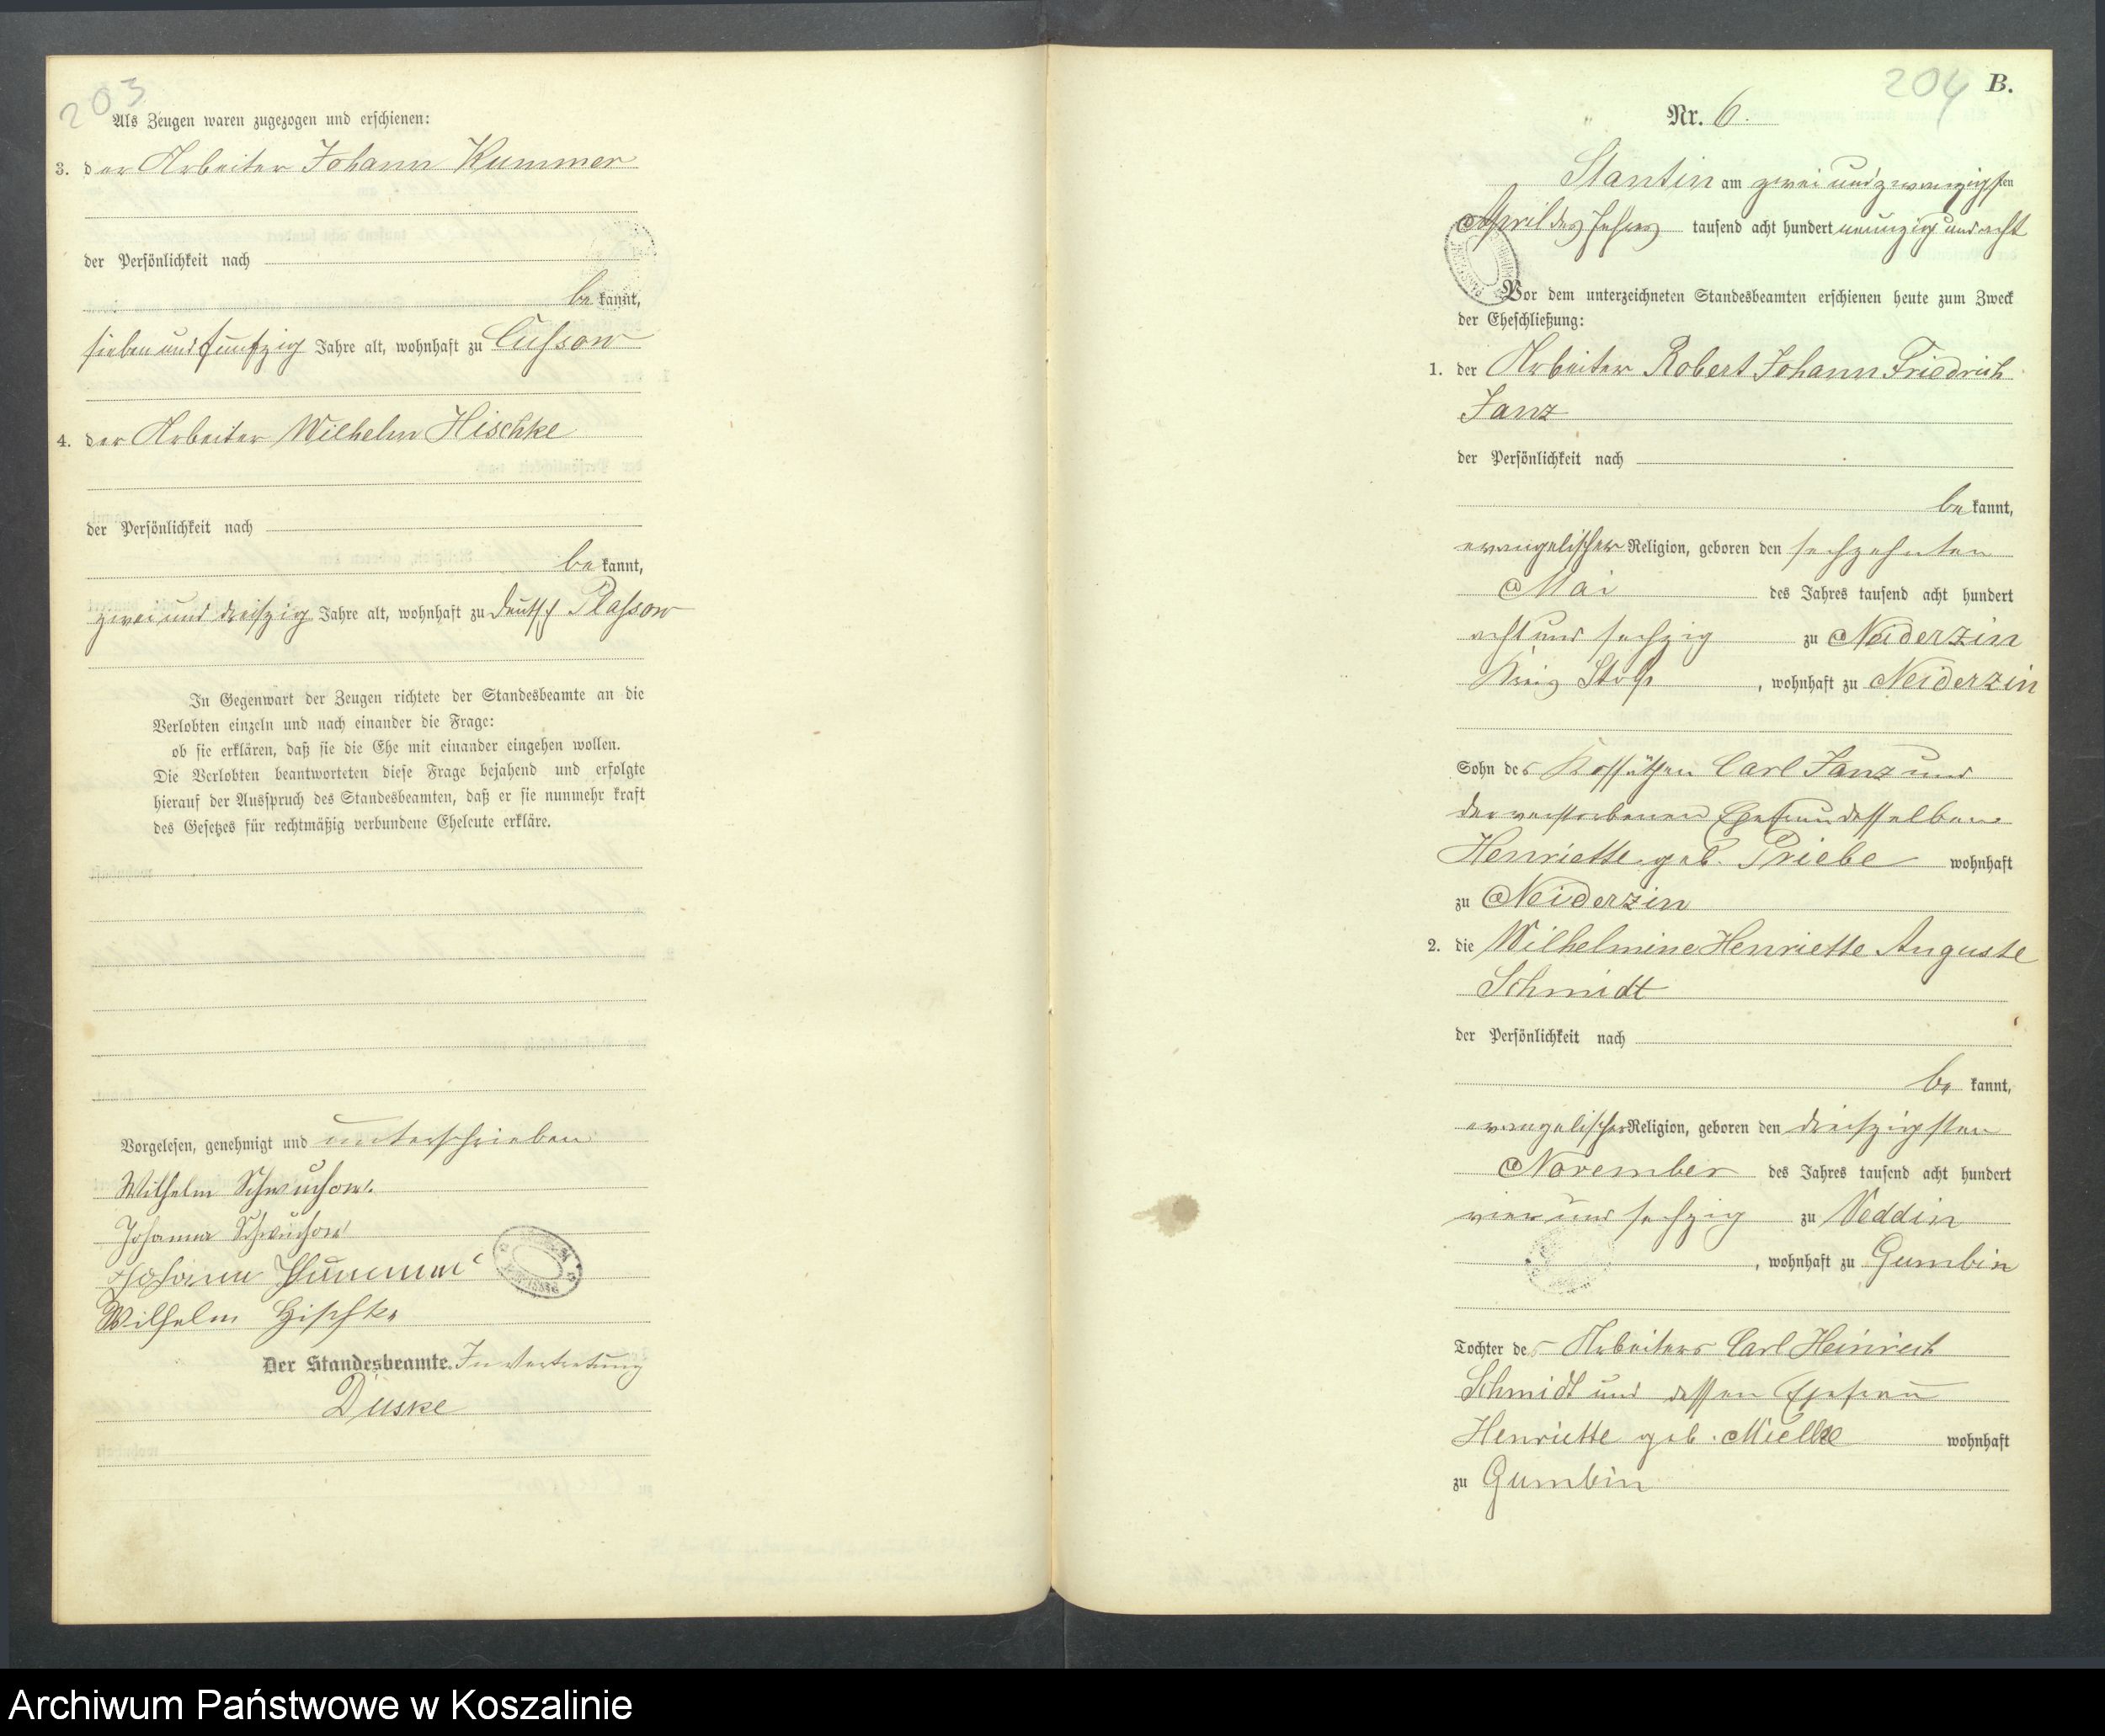 203
Als Zeugen waren zugezogen und erschienen:
3. der Arbeiter Johann Kummer
der Persönlichkeit nach
be kannt,
sieben und funfzig Jahre alt, wohnhaft zu Cussow
4. der Arbeiter Wilhelm Hischke
der Persönlichkeit nach
be kannt,
zwei und dreißzig Jahre alt, wohnhaft zu deutsch Plassow
In Gegenwart der Zeugen richtete der Standesbeamte an die
Verlobten einzeln und nach einander die Frage:
ob sie erklären, daß sie die Ehe mit einander eingehen wollen.
Die Verlobten beantworteten diese Frage bejahend und erfolgte
hierauf der Ausspruch des Standesbeamten, daß er sie nunmehr kraft
des Gesetzes für rechtmäßig verbundene Eheleute erkläre.
Vorgelesen, genehmigt und unterschrieben
Wilhelm Schwuchow.
Johanna Schwuchow
Johann Kummer
Wilhelm Hischke
Der Standesbeamte. In Vertretung
Düske
204 B.
Nr. 6.
Stantin am zwei und zwanzigsten
April des Jahres tausend acht hundert neunzig und acht
Vor dem unterzeichneten Standesbeamten erschienen heute zum Zweck
der Eheschließung:
1. der Arbeiter Robert Johann Friedrich
Janz
der Persönlichkeit nach
be kannt,
evangelischer Religion, geboren den sechzehnten
Mai des Jahres tausend acht hundert
acht und sechzig zu Neiderzin
Kreis Stolp, wohnhaft zu Neiderzin
Sohn des Kossäthen Carl Janz und
der verstorbenen Ehefrau desselben
Henriette geb. Priebe wohnhaft
zu Neiderzin
2. die Wilhelmine Henriette Auguste
Schmidt
der Persönlichkeit nach
be kannt,
evangelischer Religion, geboren den dreißzigsten
November des Jahres tausend acht hundert
vier und sechzig zu Veddin
, wohnhaft zu Gumbin
Tochter des Arbeiters Carl Heinrich
Schmidt und dessen Ehefrau
Henriette geb. Mielke wohnhaft
zu Gumbin
Archiwum Państwowe w Koszalinie